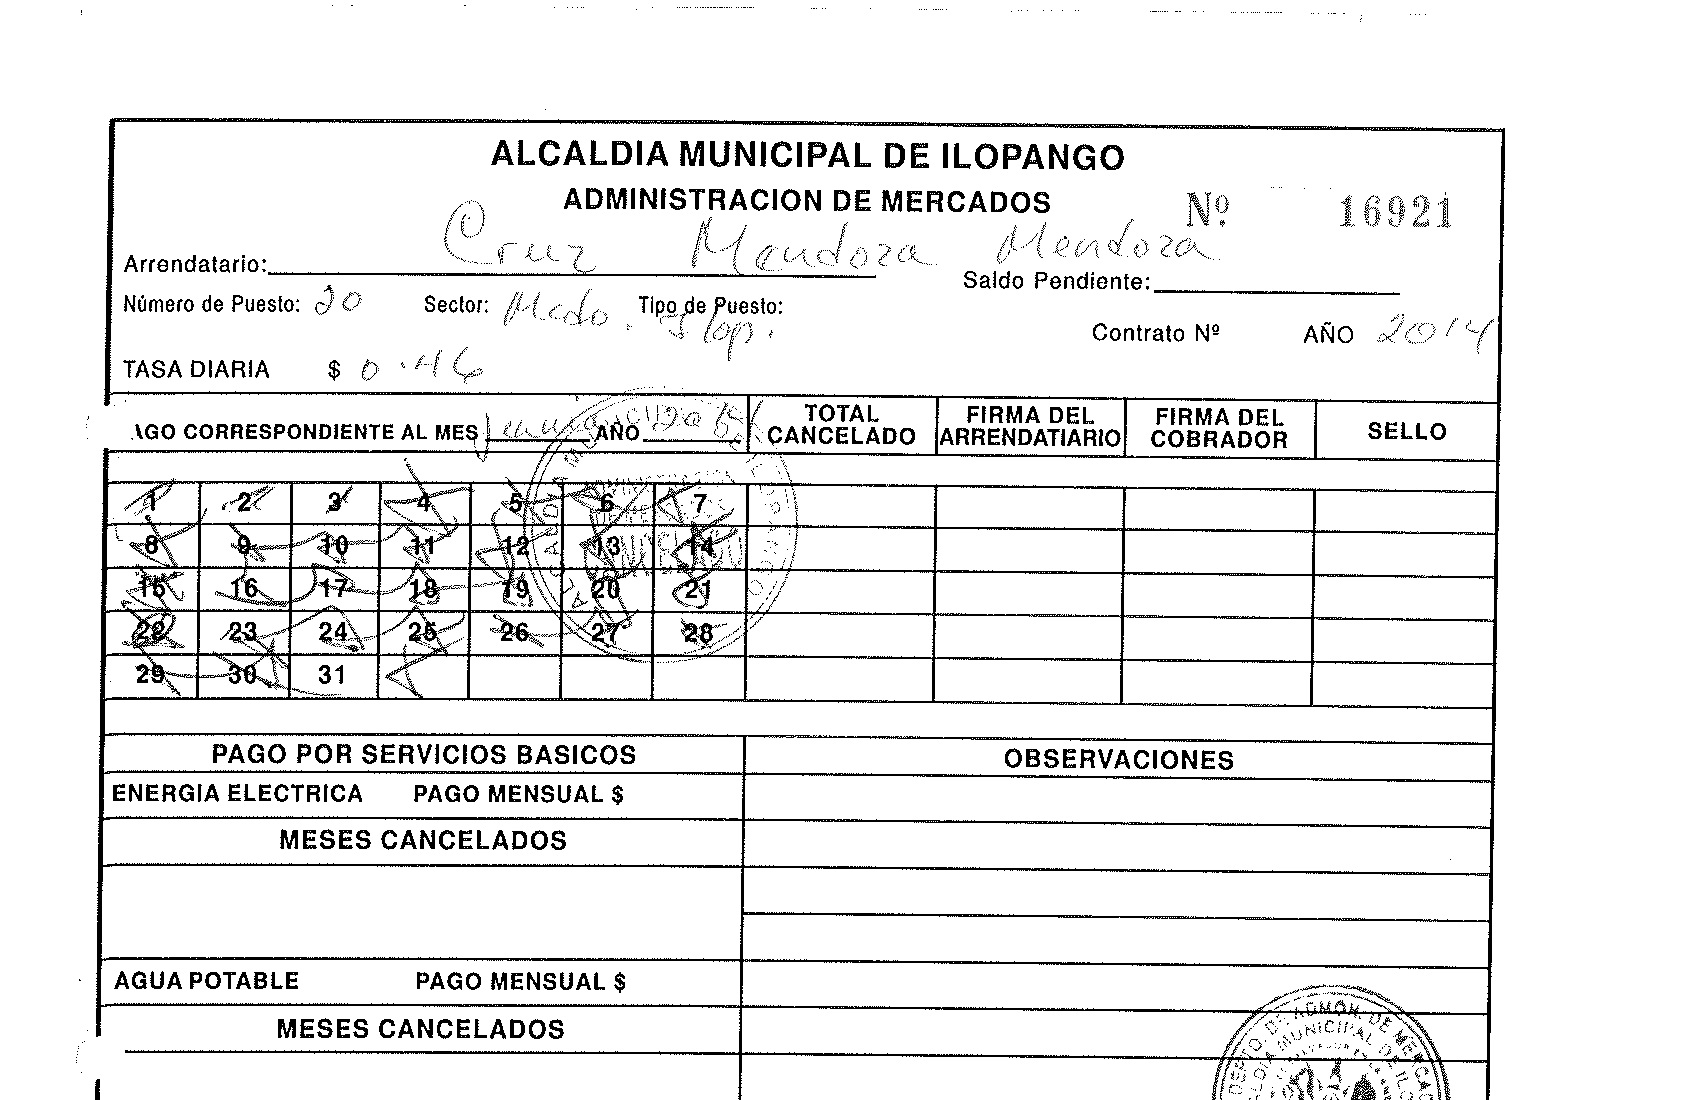 ALCALDIA MUNICIPAL DE ILOPANGO
ADMINISTRACION DE MERCADOS
Nº 16921
Arrendatario: Cruz Mendoza Mendoza
Saldo Pendiente:
Número de Puesto: 20 Sector: Mcdo. Ilop. Tipo de Puesto:
Contrato Nº AÑO 2014
TASA DIARIA $ 0.46
AGO CORRESPONDIENTE AL MES AÑO TOTAL CANCELADO FIRMA DEL ARRENDATIARIO FIRMA DEL COBRADOR SELLO
1 2 3 4 5 6 7
8 9 10 11 12 13 14
15 16 17 18 19 20 21
22 23 24 25 26 27 28
29 30 31
CANCELADO
PAGO POR SERVICIOS BASICOS OBSERVACIONES
ENERGIA ELECTRICA PAGO MENSUAL $
MESES CANCELADOS
AGUA POTABLE PAGO MENSUAL $
MESES CANCELADOS
DEPTO. DE ADMON. DE MERCAD